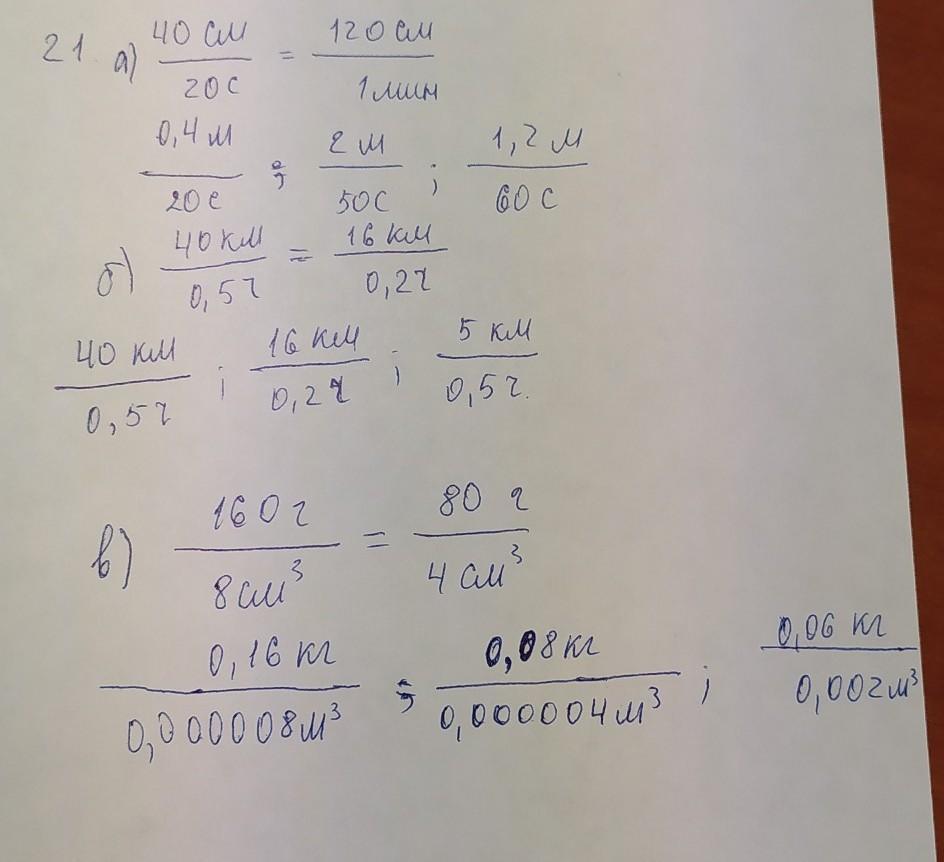 21. а) 40 см / 20 с = 120 см / 1 мин
0,4 м / 20 с ; 2 м / 50 с ; 1,2 м / 60 с
б) 40 км / 0,5 ч = 16 км / 0,2 ч
40 км / 0,5 ч ; 16 км / 0,2 ч ; 5 км / 0,5 ч.
в) 160 г / 8 см³ = 80 г / 4 см³
0,16 кг / 0,000008 м³ ; 0,08 кг / 0,000004 м³ ; 0,06 кг / 0,002 м³